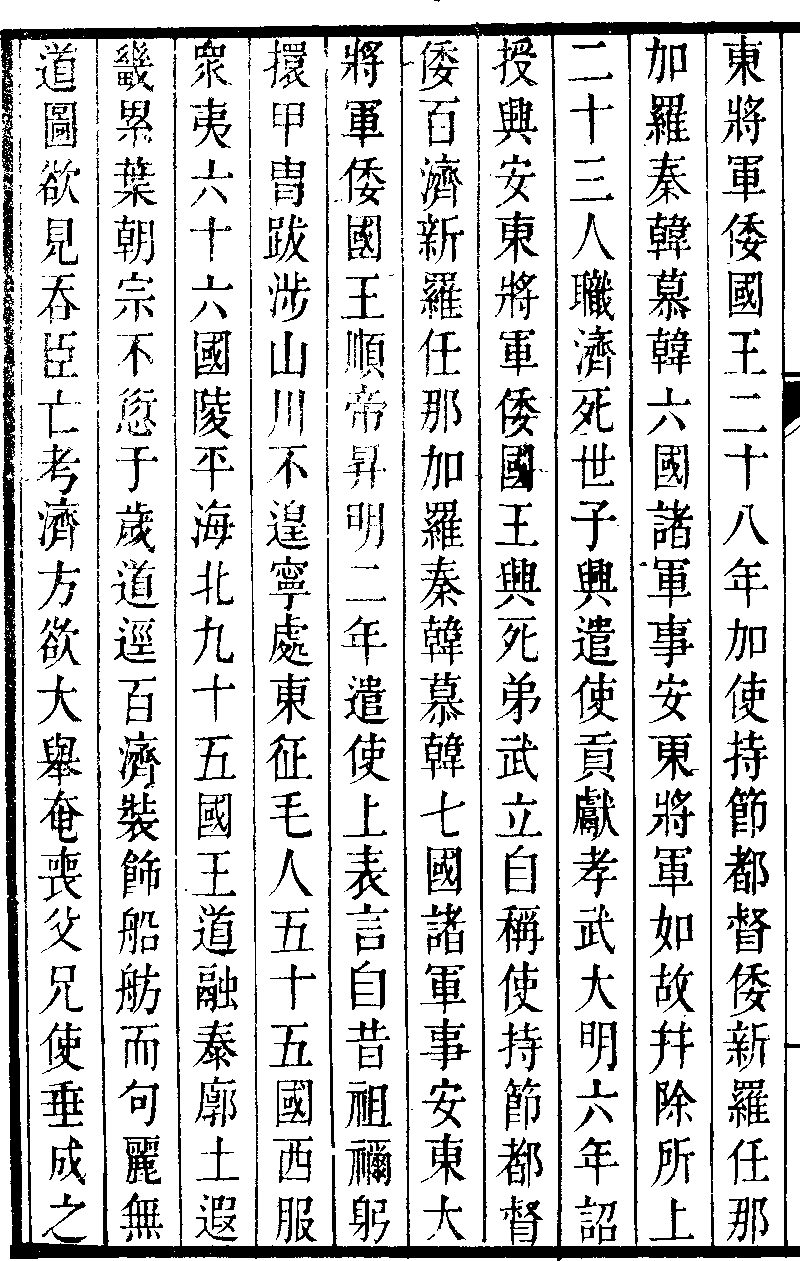 東將軍倭國王二十八年加使持節都督倭新羅任那
加羅秦韓慕韓六國諸軍事安東將軍如故幷除所上
二十三人職濟死世子興遣使貢獻孝武大明六年詔
授興安東將軍倭國王興死弟武立自稱使持節都督
倭百濟新羅任那加羅秦韓慕韓七國諸軍事安東大
將軍倭國王順帝昇明二年遣使上表言自昔祖禰躬
擐甲胄跋涉山川不遑寧處東征毛人五十五國西服
衆夷六十六國陵平海北九十五國王道融泰廓土遐
畿累葉朝宗不愆于歲道逕百濟裝飾船舫而句麗無
道圖欲見吞臣亡考濟方欲大舉奄喪父兄使垂成之